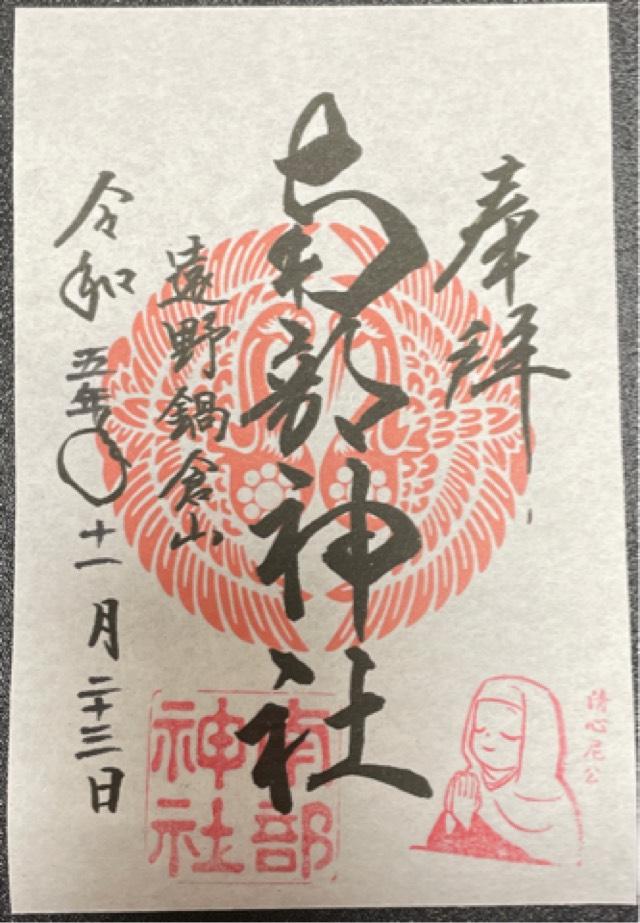 奉拝
南部神社
遠野鍋倉山
令和五年十一月二十三日
南部
神社
清心尼公